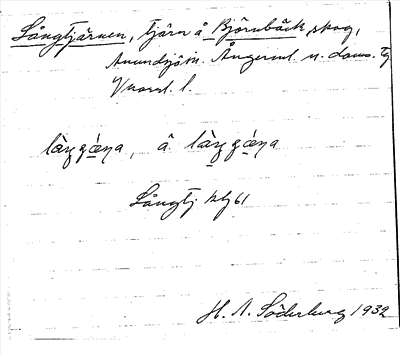 Långtjärnen, tjärn å Björnbäck skog,
Anundsjö sn. Ångerml. n. doms. tg
Vnorrl. l.
làŋgǽŋa, å làŋgǽŋa
Långtj kbg 61
H. A. Söderberg 1932